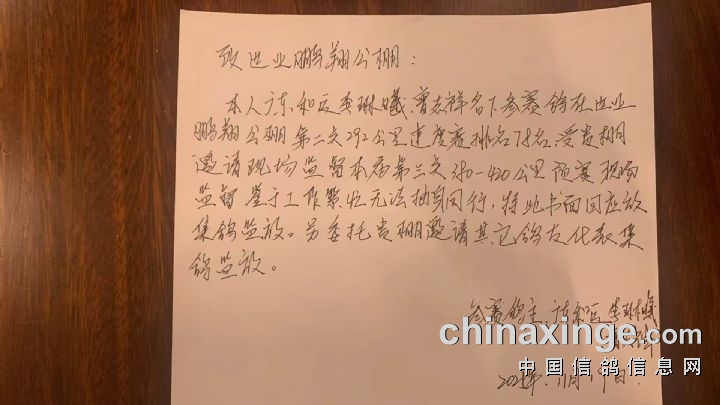 致世业鹏翔公棚：
本人广东和府李琳曦、曾志祥名下参赛鸽在世业
鹏翔公棚第二关292公里速度赛排名78名，受贵棚
邀请现场监督本届第三关380-420公里预赛现场
监督鉴于工作繁忙无法抽身同行，特此书面回应放
集鸽监放。另委托贵棚邀请其它鸽友代表集
鸽监放。
参赛鸽主：广东和府 李琳曦
chinaxinge.com
中国信鸽信息网